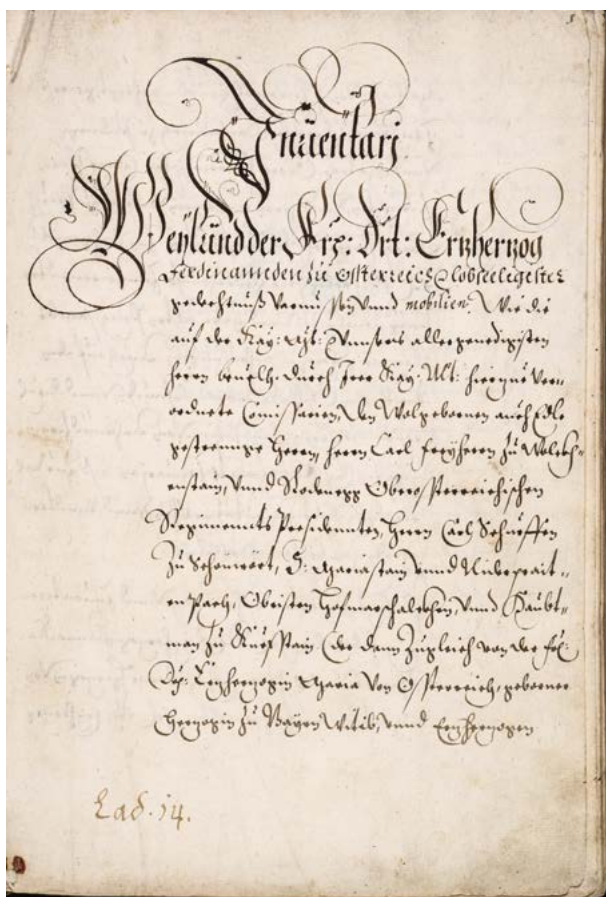 5
Inuentarj
Weylund der Frx: Drt: Ertzherzog
Ferdinannden zu Össterreich Lobseeligister
gedechtnuß Varnussen vnnd mobilien. Wie die
auf der Kay: Mt: Vnnsers aller genedigisten
herrn beuelh. durch Irer Kay: Mt: hierzue Ver„
ordnete Comissarien, Den Wolgebornen auch Edle
gestrennge Herrn, herrn Carl freyherrn zu Wolckh„
enstain, Vnnd Rodenegg Oberössterreichischen
Regiments Presidennten, Herrn Carl Schurffen
zu Schönwört, Mariastain vnnd Nidergrait„
en Pach, Obristen hofmarschalckhen, Vnnd Haubt„
man zu Kuefstain (der dann zugleich von der
Ertzherzogin Maria von Össterreich, geborner
Hertzogin zu Bayrn Witib, vnnd Ertzhertzogen
Lad. 14.